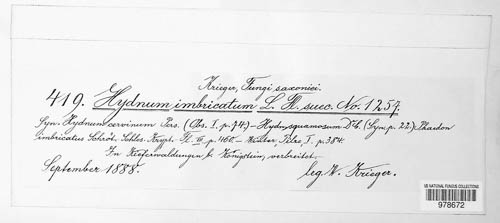 Krieger, Fungi saxonici.
419. Hydnum imbricatum L. Fl. suec. No. 1257.
Syn. Hydnum cervinum Pers. (Obs. I. p. 74) – Hydn. squamosum DC. (Syn. p. 22.) Phaeodon
imbricatus Schröt. Schles. Krypt. Fl. III p. 460. – Winter Pilze, I. p. 384.
In Kiefernwaldungen b. Königstein, verbreitet.
September 1888. leg. W. Krieger.
US NATIONAL FUNGUS COLLECTIONS
978672